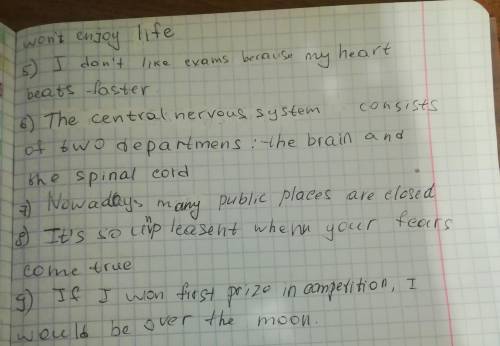 won't enjoy life
5) I don't like exams because my heart
beats faster
6) The central nervous system consists
of two departmens: the brain and
the spinal cold
7) Nowadays many public places are closed
8) It's so unpleasent whenn your fears
come true
9) If I won first prize in competition, I
would be over the moon.